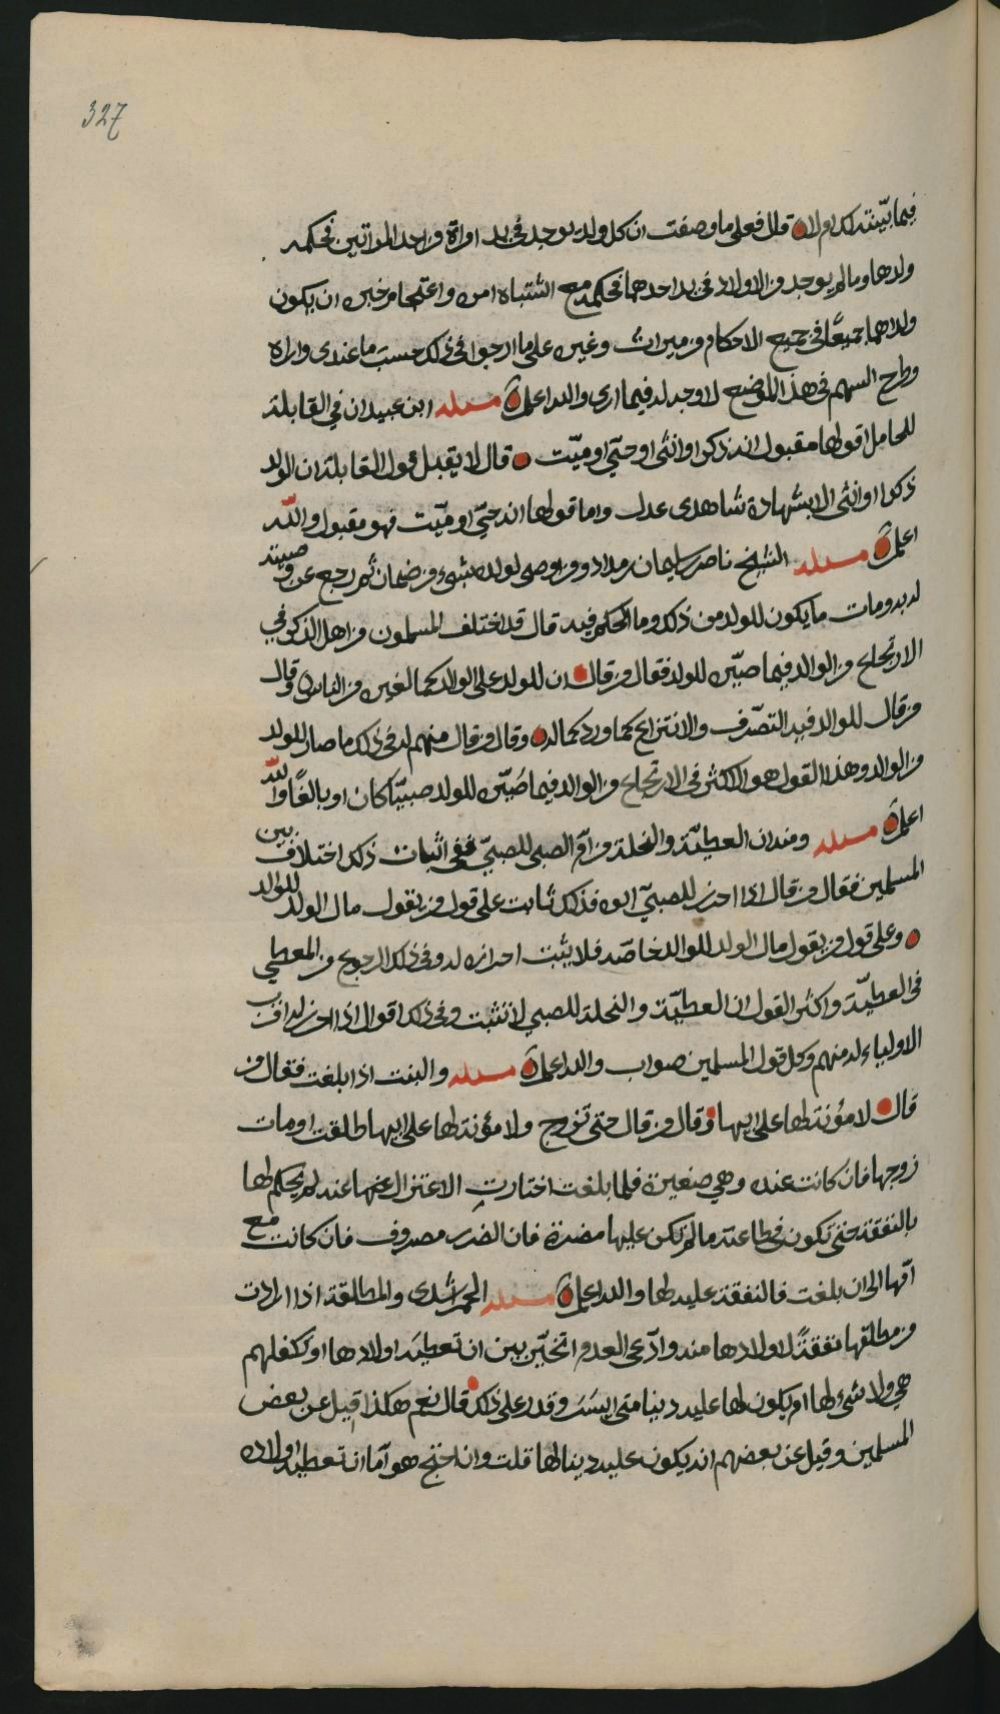 327
فيما بيّنته لك ام لا قال فعلى ما وصفت ان كل ولد يوجد في يد امراة من احد المراتين فحكمه
ولدها وما لم يوجد من الاولاد في يد احدهما فحكمه مع اشتباه امره واعتجام خبره ان يكون
ولداهما جميعًا في جميع الاحكام من ميراث وغيره على ما ارجوا في ذلك حسب ما عندي واراه
وطرح السهم في هذا الموضع لا وجه له فيما ارى والله اعلم مسئله ابن عبيدان في القابلة
للحامل اقولها مقبول انه ذكر او انثى او حيّ او ميّت قال لا يقبل قول القابلة ان الولد
ذكرا او انثى الا بشهادة شاهدى عدل واما قولها انه حيّ او ميّت فهو مقبول والله
اعلم مسئله الشيخ ناصر بن سليمان بن مداد ومن اوصى لولده بشيء من ضمان ثم رجع عن وصيته
له به ومات ما يكون للولد من ذلك وما الحكم فيه قال قد اختلف المسلمون من اهل الذكر في
الارتجاع من الوالد فيما صيّره للولد فقال من قال ان للولد على الوالد كما لغيره من الناس وقال
من قال للوالد فيه التصرّف والانتزاع كما ورد كماله وقال من قال منهم له في ذلك ما صار للولد
من الوالد وهذا القول هو الاكثر في الارتجاع من الوالد فيما صُيّره للولد صبيّا كان او بالغًا والله
اعلم مسئله ومنه ان العطيّة والنحلة من امّ الصبي للصبيّ ففي اثبات ذلك اختلاف بين
المسلمين فقال من قال اذا احرز للصبيّ ابوه فذلك ثابت على قول من يقول مال الولد للوالد
وعلى قول من يقول مال الولد للوالد خاصّه فلا يثبت احرازه له وفي ذلك الرجوع من المعطي
في العطيّة واكثر القول ان العطيّة والنحلة للصبي لا تثبت وفي ذلك اقوال اذا احرز له اقرب
الاولياء له منهم وكل قول المسلمين صواب والله اعلم مسئله والبنت اذا بلغت فقال من
قال لا مؤنة لها على ابيها وقال من قال حتى تزوج ولا مؤنة لها على ابيها طلقت او مات
زوجها فان كانت عنده وهي صغيرة فلما بلغت اختارت الاعتزال عنها عنه لم يحكم لها
بالنفقة حتى تكون في طاعته ما لم تكن عليها مضرة فان الضرر مصروف فان كانت مع
امّها الى ان بلغت فالنفقة عليه لها والله اعلم مسئله الحمراشدى والمطلقة اذا ارادت
من مطلقها نفقةً لاولادها منه وادّعى العدم اتخيّر بين ان تعطيه اولادها او تكفلهم
هي ولا شيء لها ام يكون لها عليه دينا متى ايسر وقدر على ذلك قال نعم هكذا قيل عن بعض
المسلمين وقيل عن بعضهم انه يكون عليه دينا لها قلت وان احتج هو امّا ان تعطيه اولاده